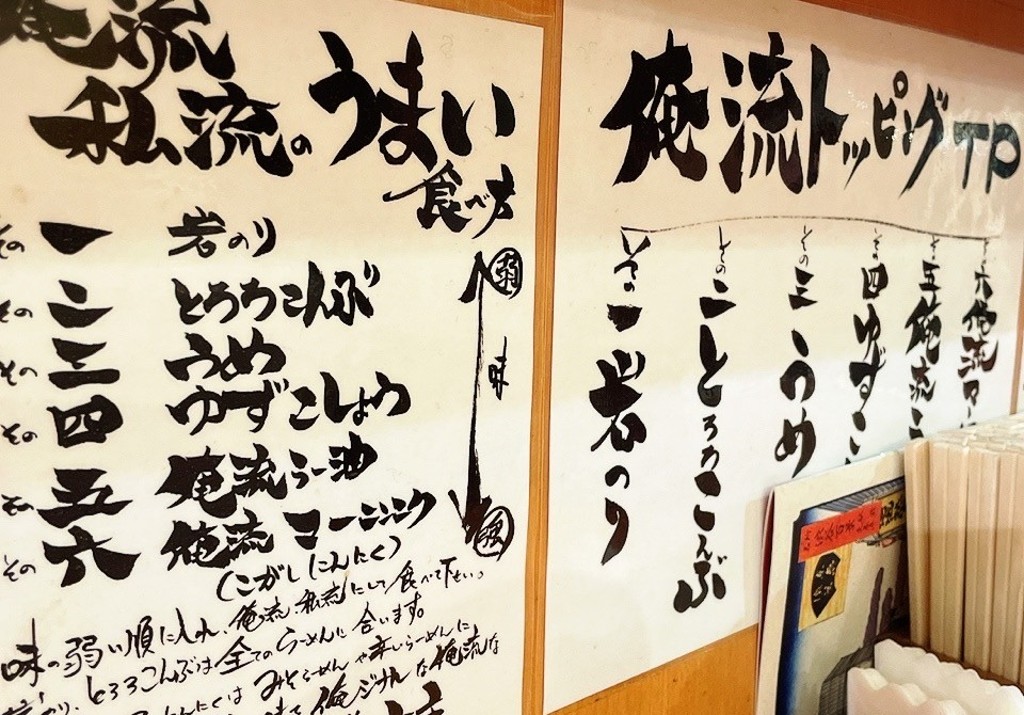 俺流
私流のうまい
食べ方
その一 岩のり
その二 とろろこんぶ
その三 うめ
その四 ゆずこしょう
その五 俺流ラー油
その六 俺流マー
(こがしにんにく)
弱
味
強
味の弱い順に入れ、俺流、私流にして食べて下さい。
とろろこんぶは全てのらーめんに合います。
にくはみそらーめんや辛しらーめんに
俺ジナルな俺流な
俺流トッピングTP
その一岩のり
その二とろろこんぶ
その三うめ
その四ゆずこ
その五俺流
その六俺流マー